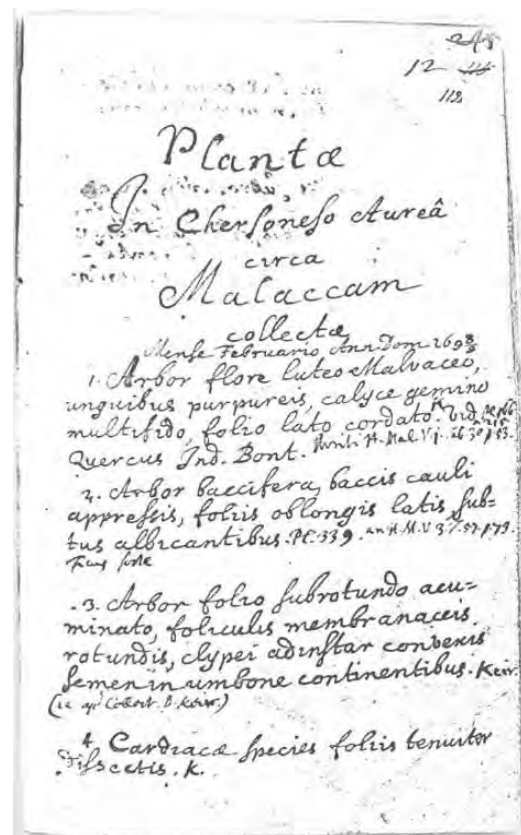 12
112
Plantæ
In Chersoneso Aureâ
circa
Malaccam
collectæ
Mense Februario Ann. Dom. 169
1. Arbor flore luteo Malvaceo,
unguibus purpureis, calyce gemino
multifido, folio lato cordato. Vid.
Quercus Ind. Bont. H. Mal. V. 1.
2. Arbor baccifera, baccis cauli
appressis, foliis oblongis latis sub=
tus albicantibus. Pt. 339. an H. M. V 3. f. 57. p. 73.
Ficus forte
3. Arbor folio subrotundo acu=
minato, foliculis membranaceis
rotundis, clypei adinstar convexis
semen in umbone continentibus. Keir.
4. Cardiacæ species foliis tenuiter
dissectis. K.